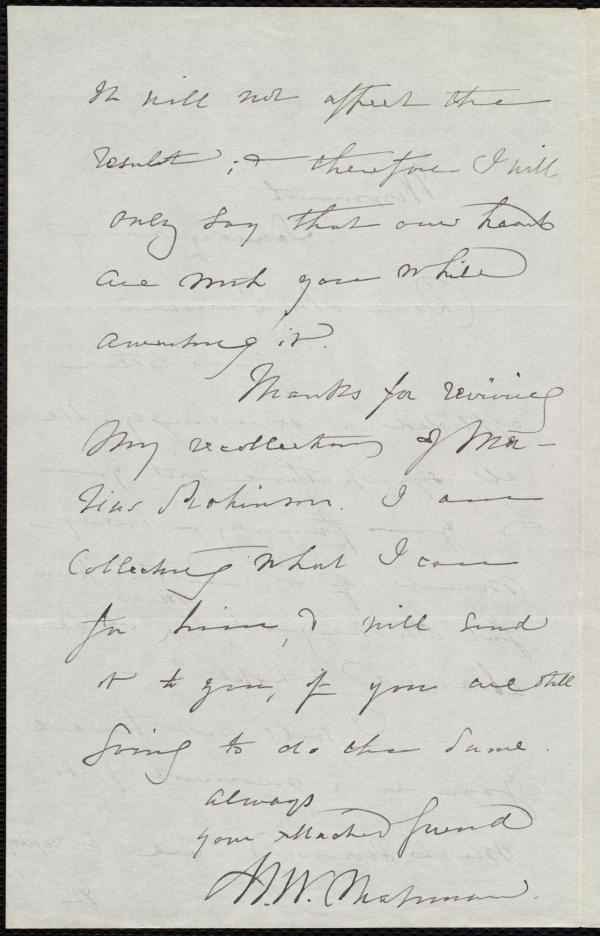 It will not affect the
result; & therefore I will
only say that our hearts
are with you while
awaiting it.
Thanks for reviving
my recollections of Ma-
rius Robinson. I am
collecting what I can
for him, & will send
it to you, if you are still
going to do the same.
always
your attached friend
M. W. Chapman.